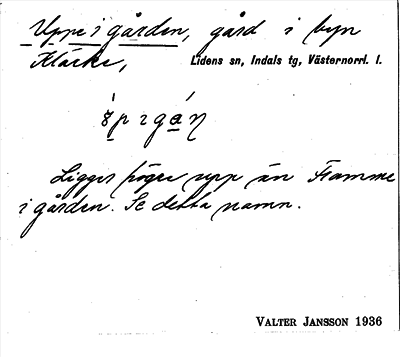 Uppe i gården, gård i byn
Klärke, Lidens sn, Indals tg, Västernorrl. l.
Ligger högre upp än Framme
i gården. Se detta namn.
VALTER JANSSON 1936